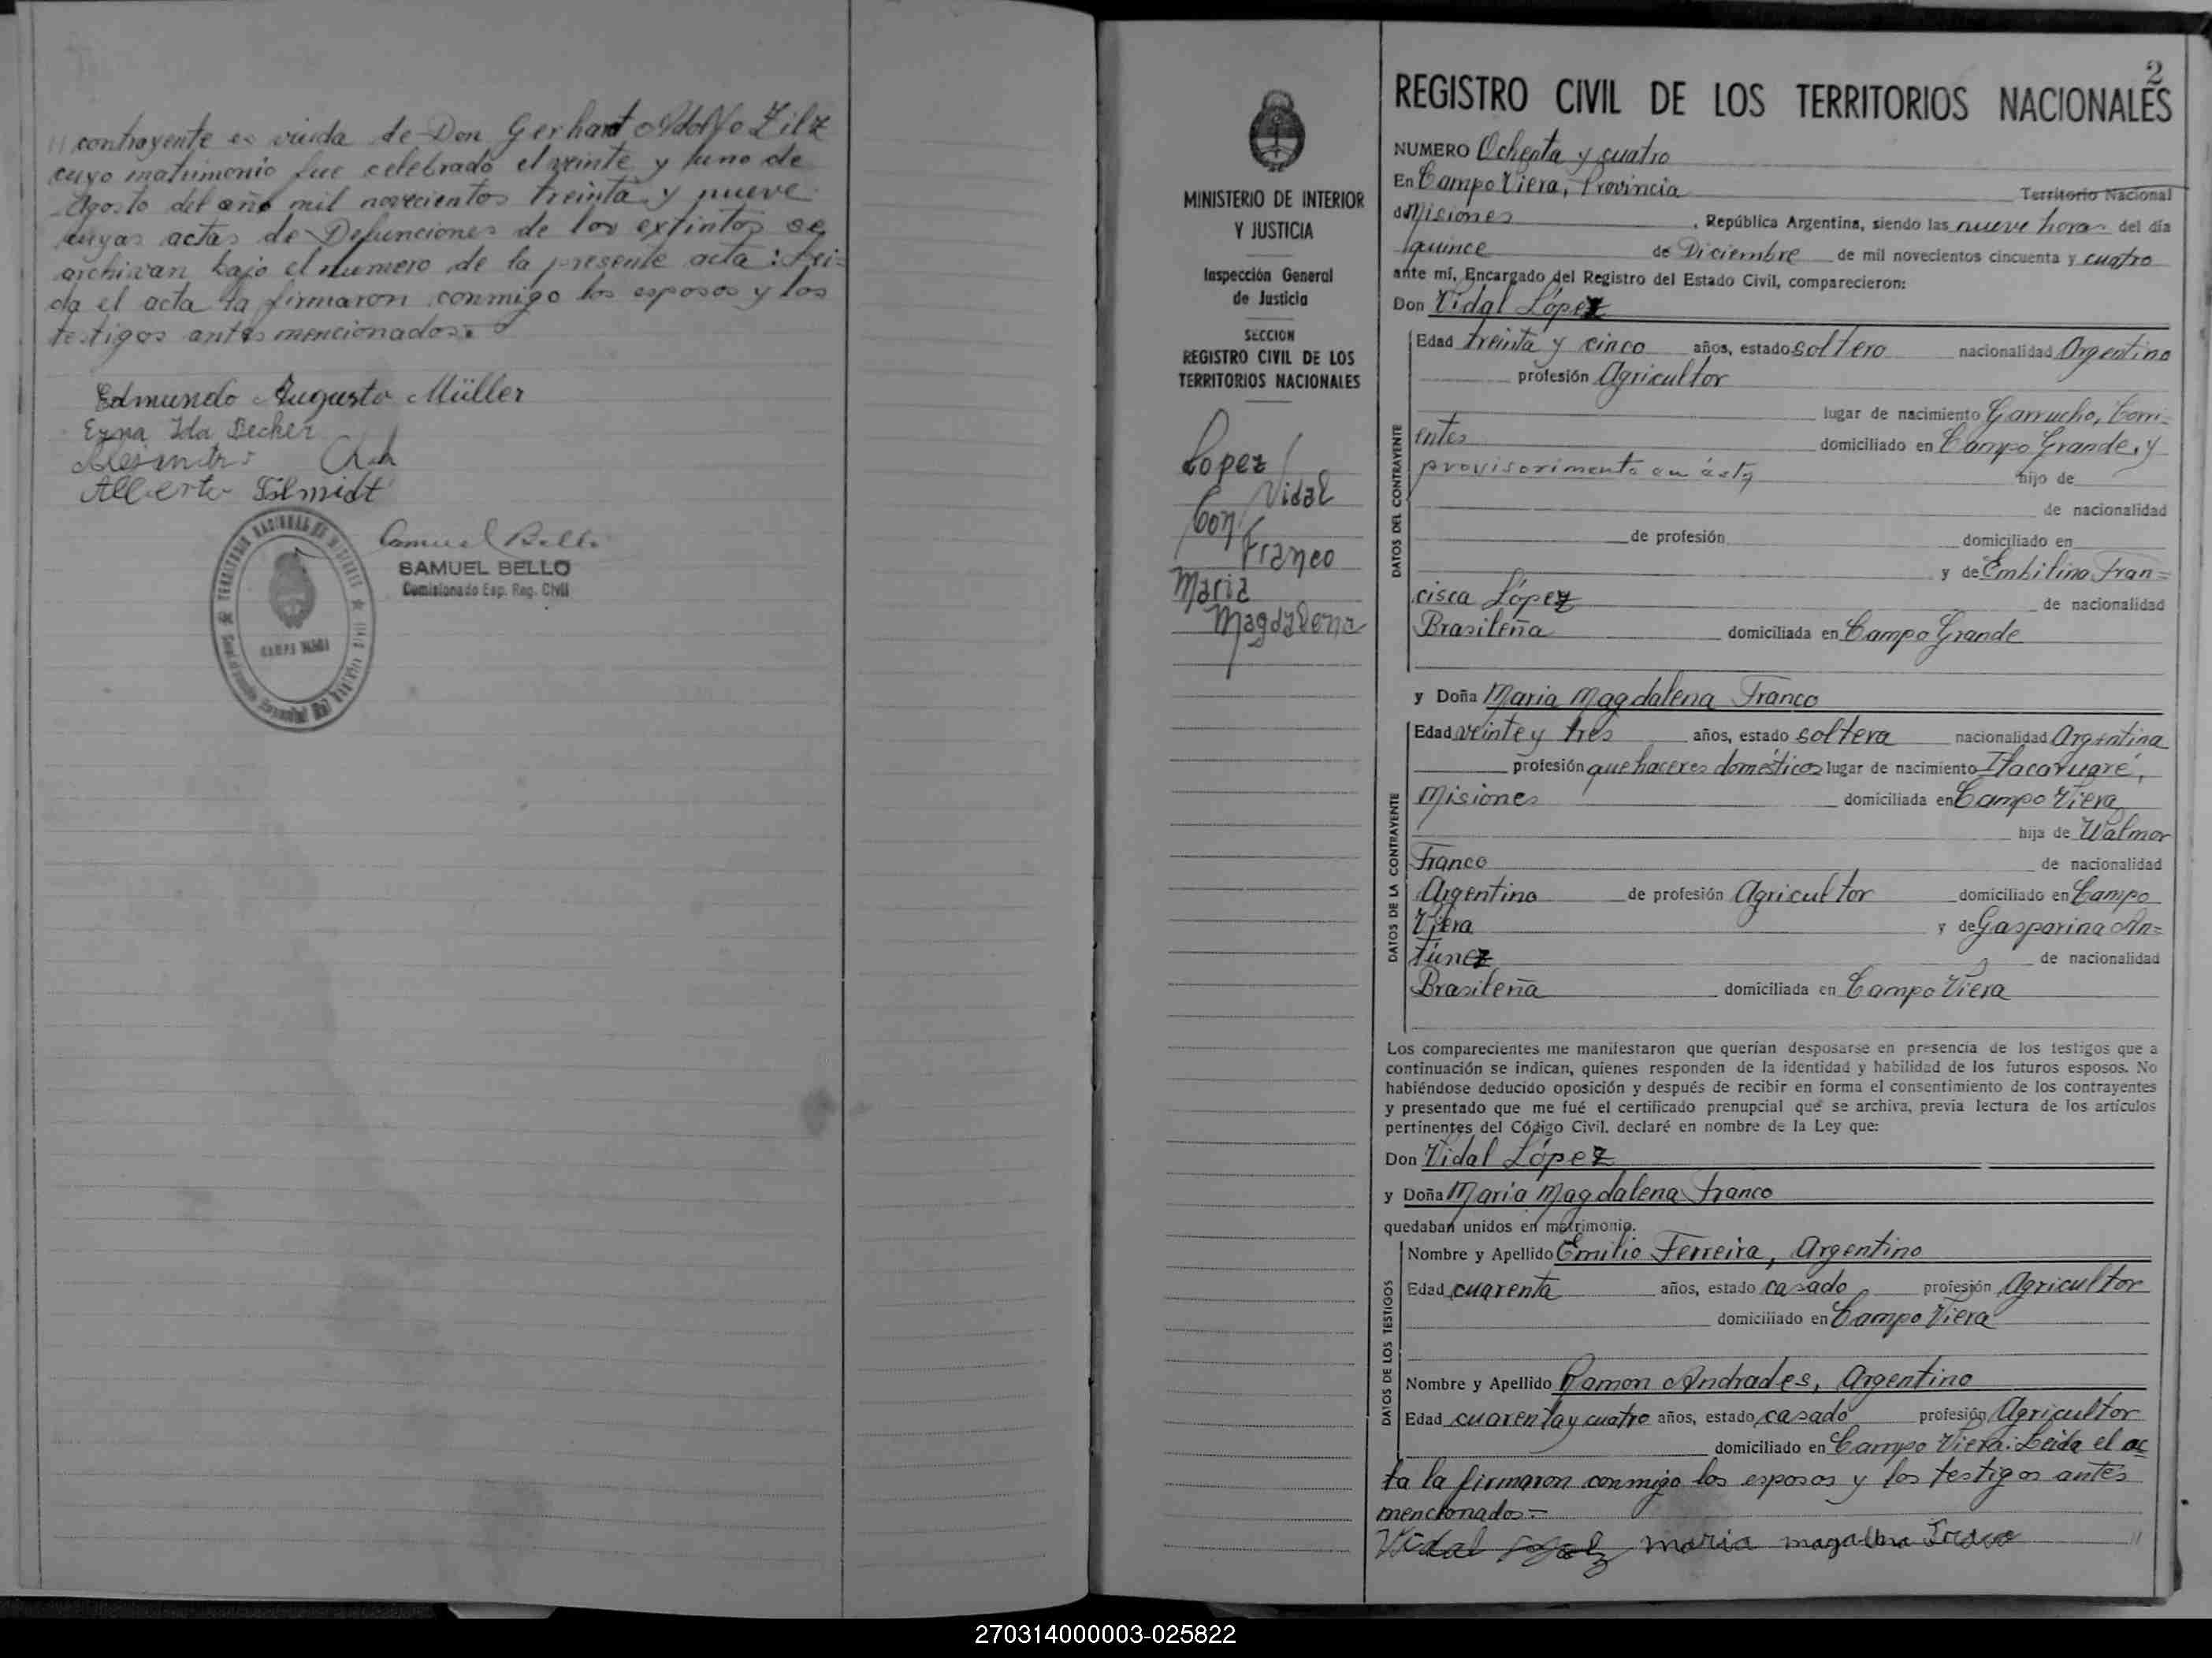 contrayente es viuda de Don Gerhart Adolfo Zilz
cuyo matrimonio fue celebrado el veinte y uno de
Agosto del año mil novecientos treinta y nueve
cuyas actas de Defunciones de los extintos se
archivan bajo el numero de la presente acta: Lei=
da el acta la firmaron conmigo los esposos y los
testigos antes mencionados.
Edmundo Augusto Müller
Erna Ida Becker
Alberto Schmidt
SAMUEL BELLO
Comisionado Esp. Reg. Civil
MINISTERIO DE INTERIOR
Y JUSTICIA
Inspección General
de Justicia
SECCION
REGISTRO CIVIL DE LOS
TERRITORIOS NACIONALES
Lopez
Vidal
Con
Franco
Maria
Magdalena
2
REGISTRO CIVIL DE LOS TERRITORIOS NACIONALES
NUMERO Ochenta y cuatro
En Campo Viera, Provincia Territorio Nacional
de Misiones, República Argentina, siendo las nueve horas del día
quince de Diciembre de mil novecientos cincuenta y cuatro
ante mí, Encargado del Registro del Estado Civil, comparecieron:
Don Vidal López
DATOS DEL CONTRAYENTE
Edad treinta y cinco años, estado soltero nacionalidad Argentino
profesión Agricultor
lugar de nacimiento Garrucho, Corri-
entes domiciliado en Campo Grande, y
provisorimente en ésta hijo de
de nacionalidad
de profesión domiciliado en
y de Embilina Fran=
cisca López de nacionalidad
Brasileña domiciliada en Campo Grande
y Doña Maria Magdalena Franco
DATOS DE LA CONTRAYENTE
Edad veinte y tres años, estado soltera nacionalidad Argentina
profesión quehaceres domésticos lugar de nacimiento Itacaruaré,
Misiones domiciliada en Campo Viera
hija de Walmor
Franco de nacionalidad
Argentino de profesión Agricultor domiciliado en Campo
Viera y de Gasparina An=
túnez de nacionalidad
Brasileña domiciliada en Campo Viera
Los comparecientes me manifestaron que querían desposarse en presencia de los testigos que a
continuación se indican, quienes responden de la identidad y habilidad de los futuros esposos. No
habiéndose deducido oposición y después de recibir en forma el consentimiento de los contrayentes
y presentado que me fué el certificado prenupcial que se archiva, previa lectura de los artículos
pertinentes del Código Civil, declaré en nombre de la Ley que:
Don Vidal López
y Doña Maria Magdalena Franco
quedaban unidos en matrimonio.
DATOS DE LOS TESTIGOS
Nombre y Apellido Emilio Ferreira, Argentino
Edad cuarenta años, estado casado profesión Agricultor
domiciliado en Campo Viera
Nombre y Apellido Ramon Andrades, Argentino
Edad cuarenta y cuatro años, estado casado profesión Agricultor
domiciliado en Campo Viera. Leida el ac
ta la firmaron conmigo los esposos y los testigos antes
mencionados.-
Vidal maria magalena
270314000003-025822